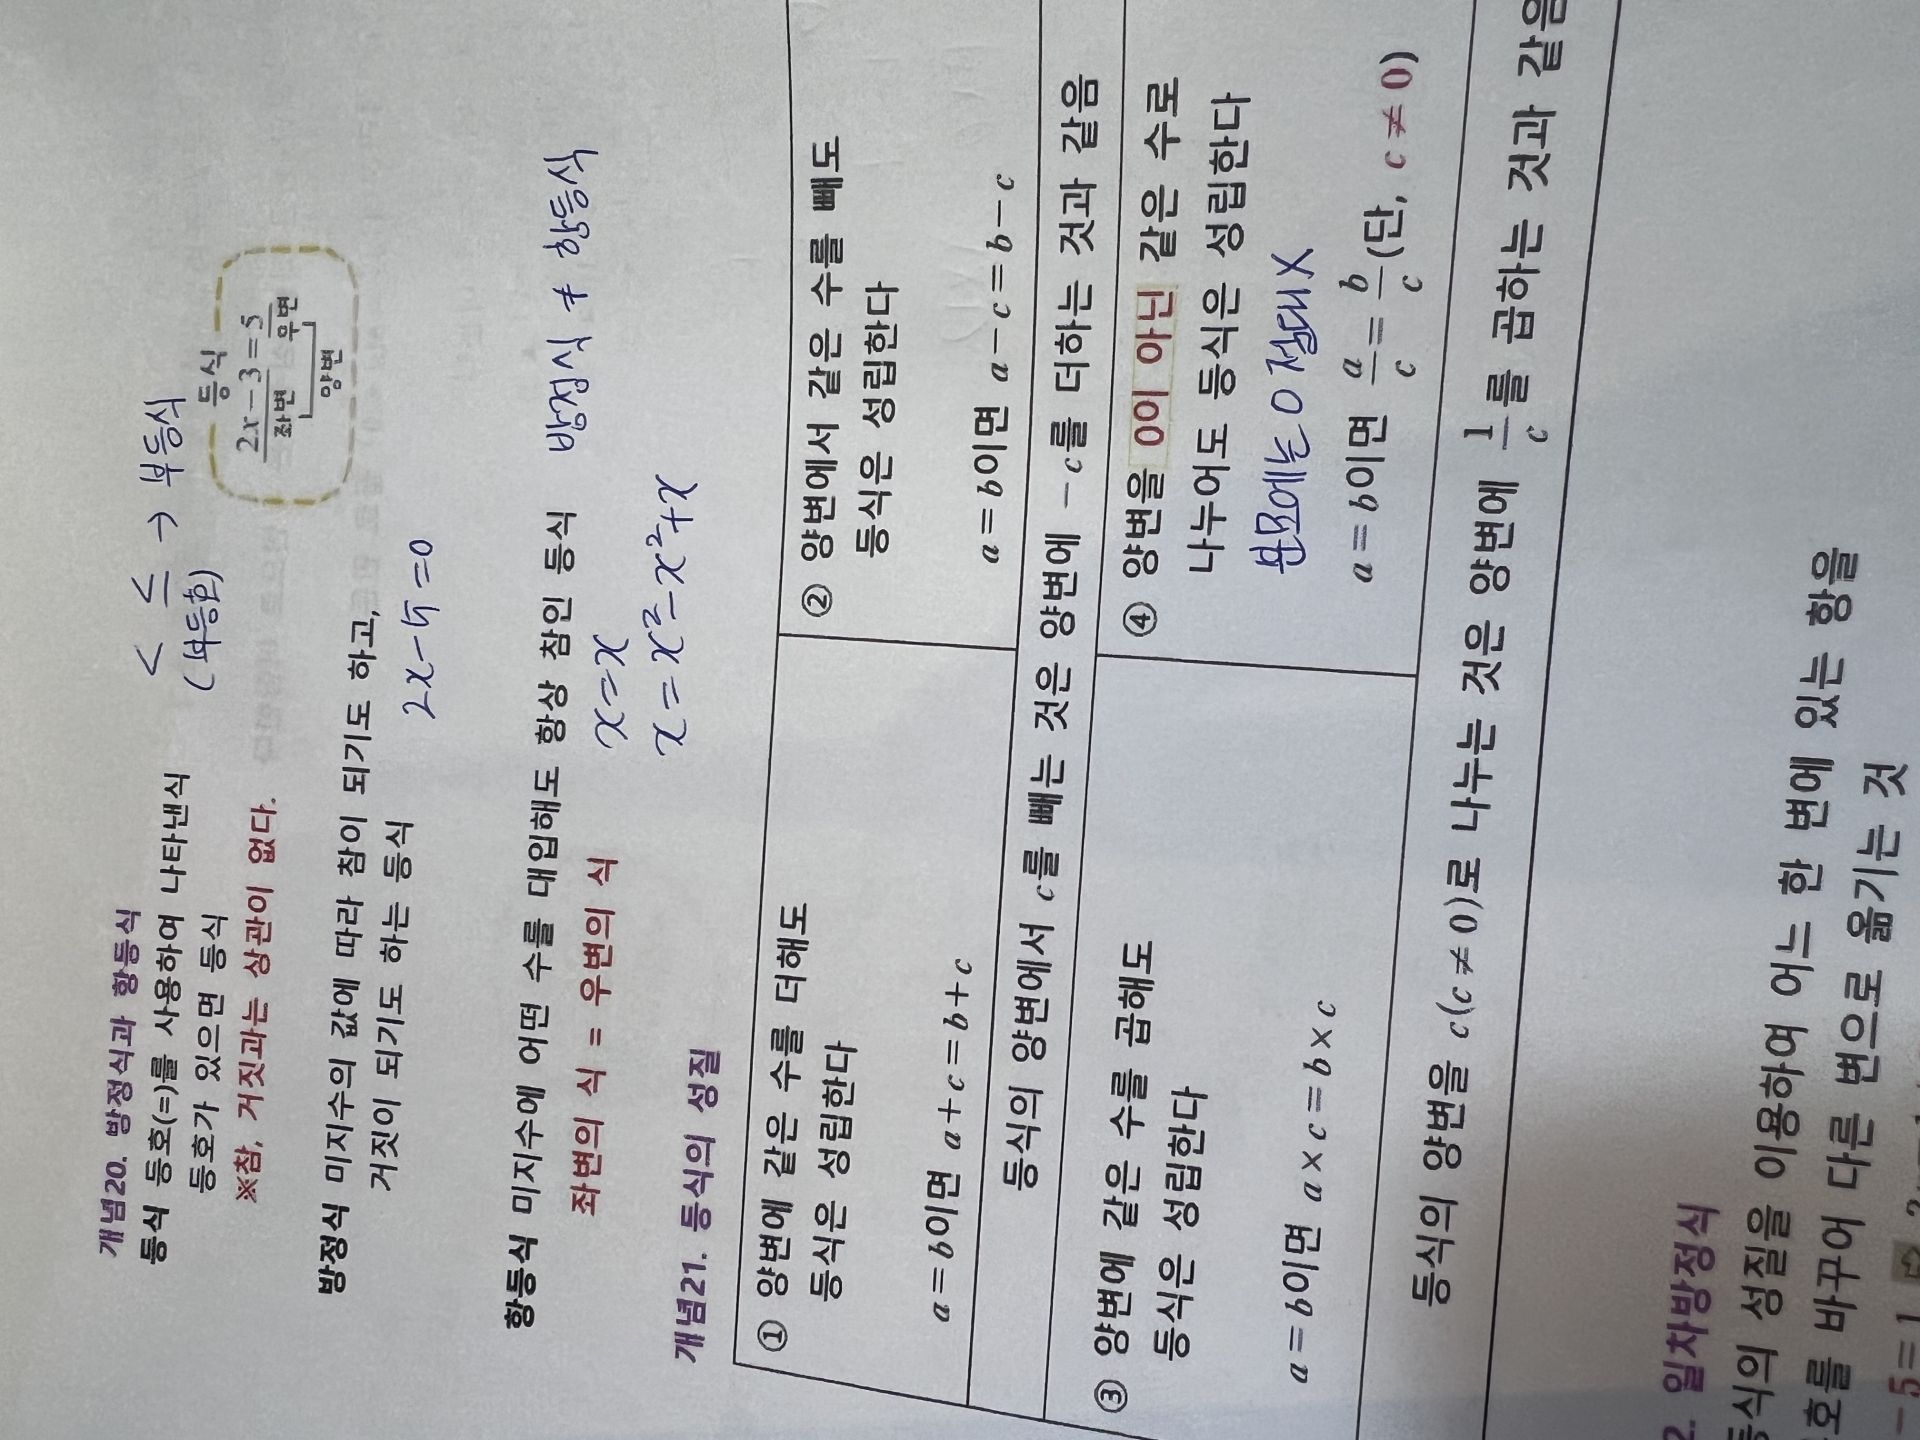 개념20. 방정식과 항등식
< ≤ → 부등식
(부등호)
등식 등호(=)를 사용하여 나타낸식
등호가 있으면 등식
※참, 거짓과는 상관이 없다.
등식
2x-3=5
좌변 우변
양변
방정식 미지수의 값에 따라 참이 되기도 하고,
거짓이 되기도 하는 등식
2x-5=0
항등식 미지수에 어떤 수를 대입해도 항상 참인 등식
방정식 ≠ 항등식
좌변의 식 = 우변의 식
x=x
x=x²-x²+x
개념21. 등식의 성질
① 양변에 같은 수를 더해도
등식은 성립한다
a=b이면 a+c=b+c
② 양변에서 같은 수를 빼도
등식은 성립한다
a=b이면 a-c=b-c
등식의 양변에서 c를 빼는 것은 양변에 -c를 더하는 것과 같음
③ 양변에 같은 수를 곱해도
등식은 성립한다
a=b이면 a×c=b×c
④ 양변을 0이 아닌 같은 수로
나누어도 등식은 성립한다
분모에는 0 절대 X
a=b이면 a/c=b/c(단, c≠0)
등식의 양변을 c(c≠0)로 나누는 것은 양변에 1/c를 곱하는 것과 같음
2. 일차방정식
등식의 성질을 이용하여 어느 한 변에 있는 항을
호를 바꾸어 다른 변으로 옮기는 것
-5=1